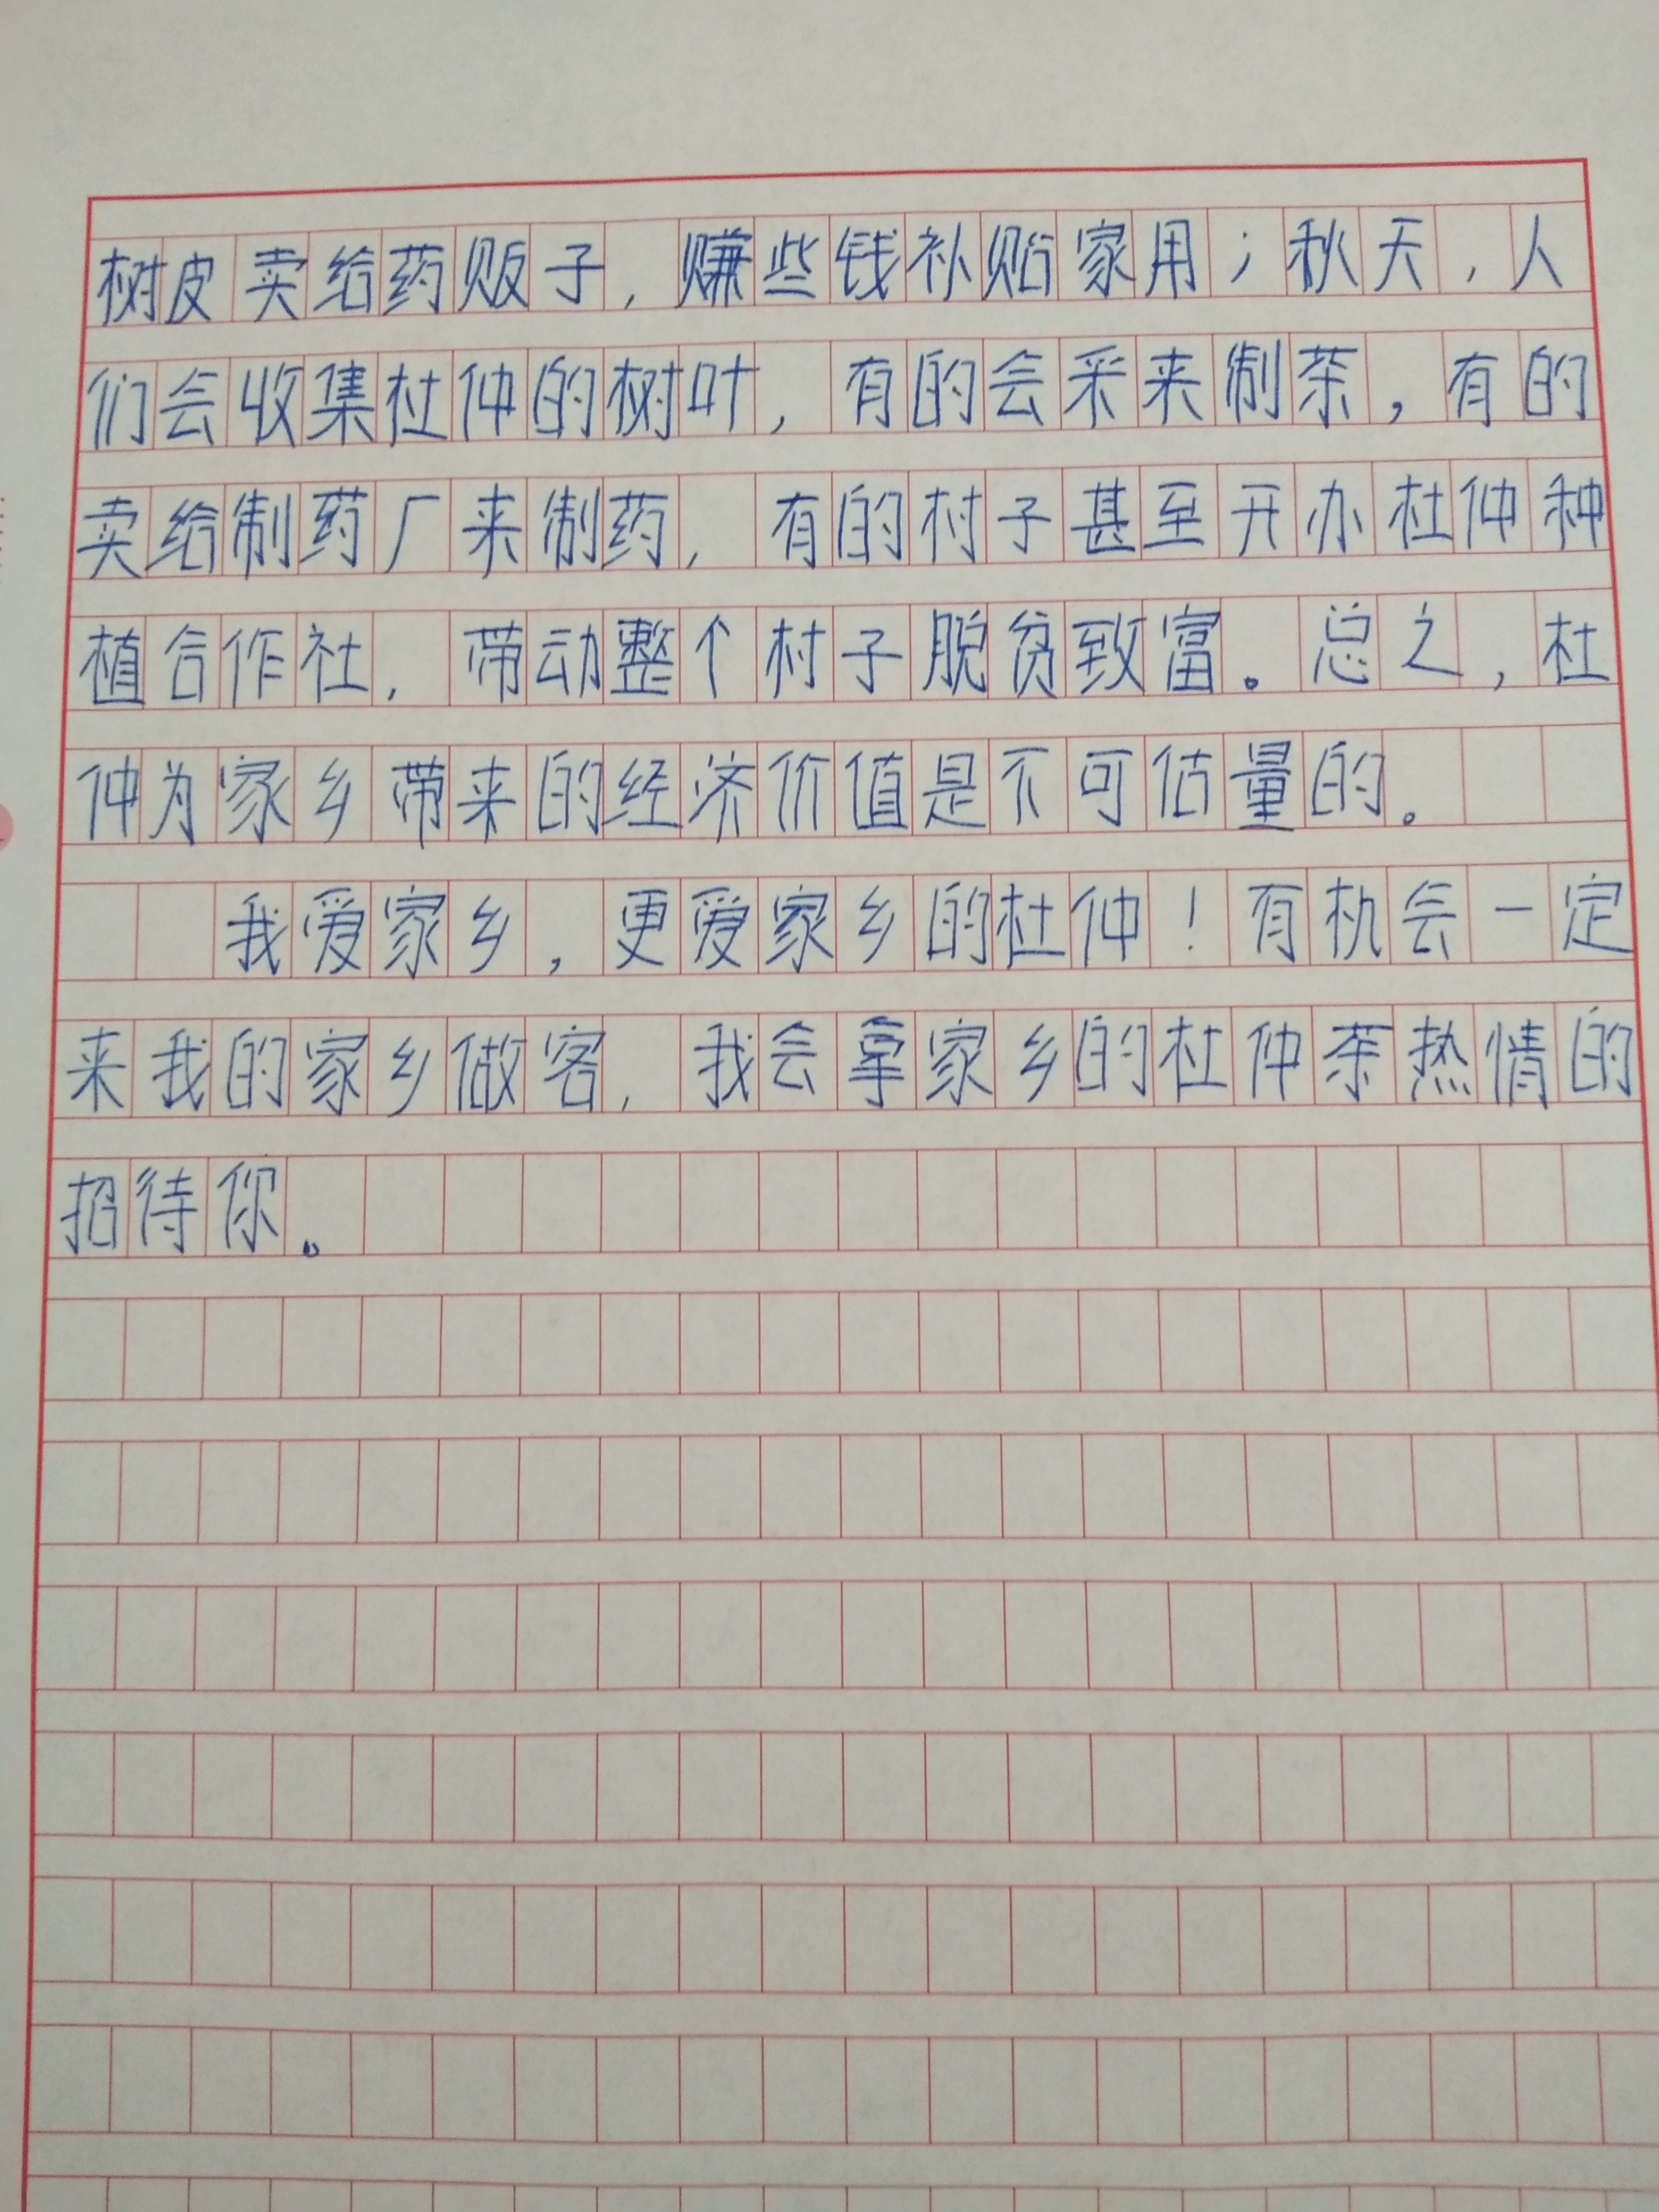 树皮卖给药贩子，赚些钱补贴家用；秋天，人
们会收集杜仲的树叶，有的会采来制茶，有的
卖给制药厂来制药，有的村子甚至开办杜仲种
植合作社，带动整个村子脱贫致富。总之，杜
仲为家乡带来的经济价值是不可估量的。
我爱家乡，更爱家乡的杜仲！有机会一定
来我的家乡做客，我会拿家乡的杜仲茶热情的
招待你。